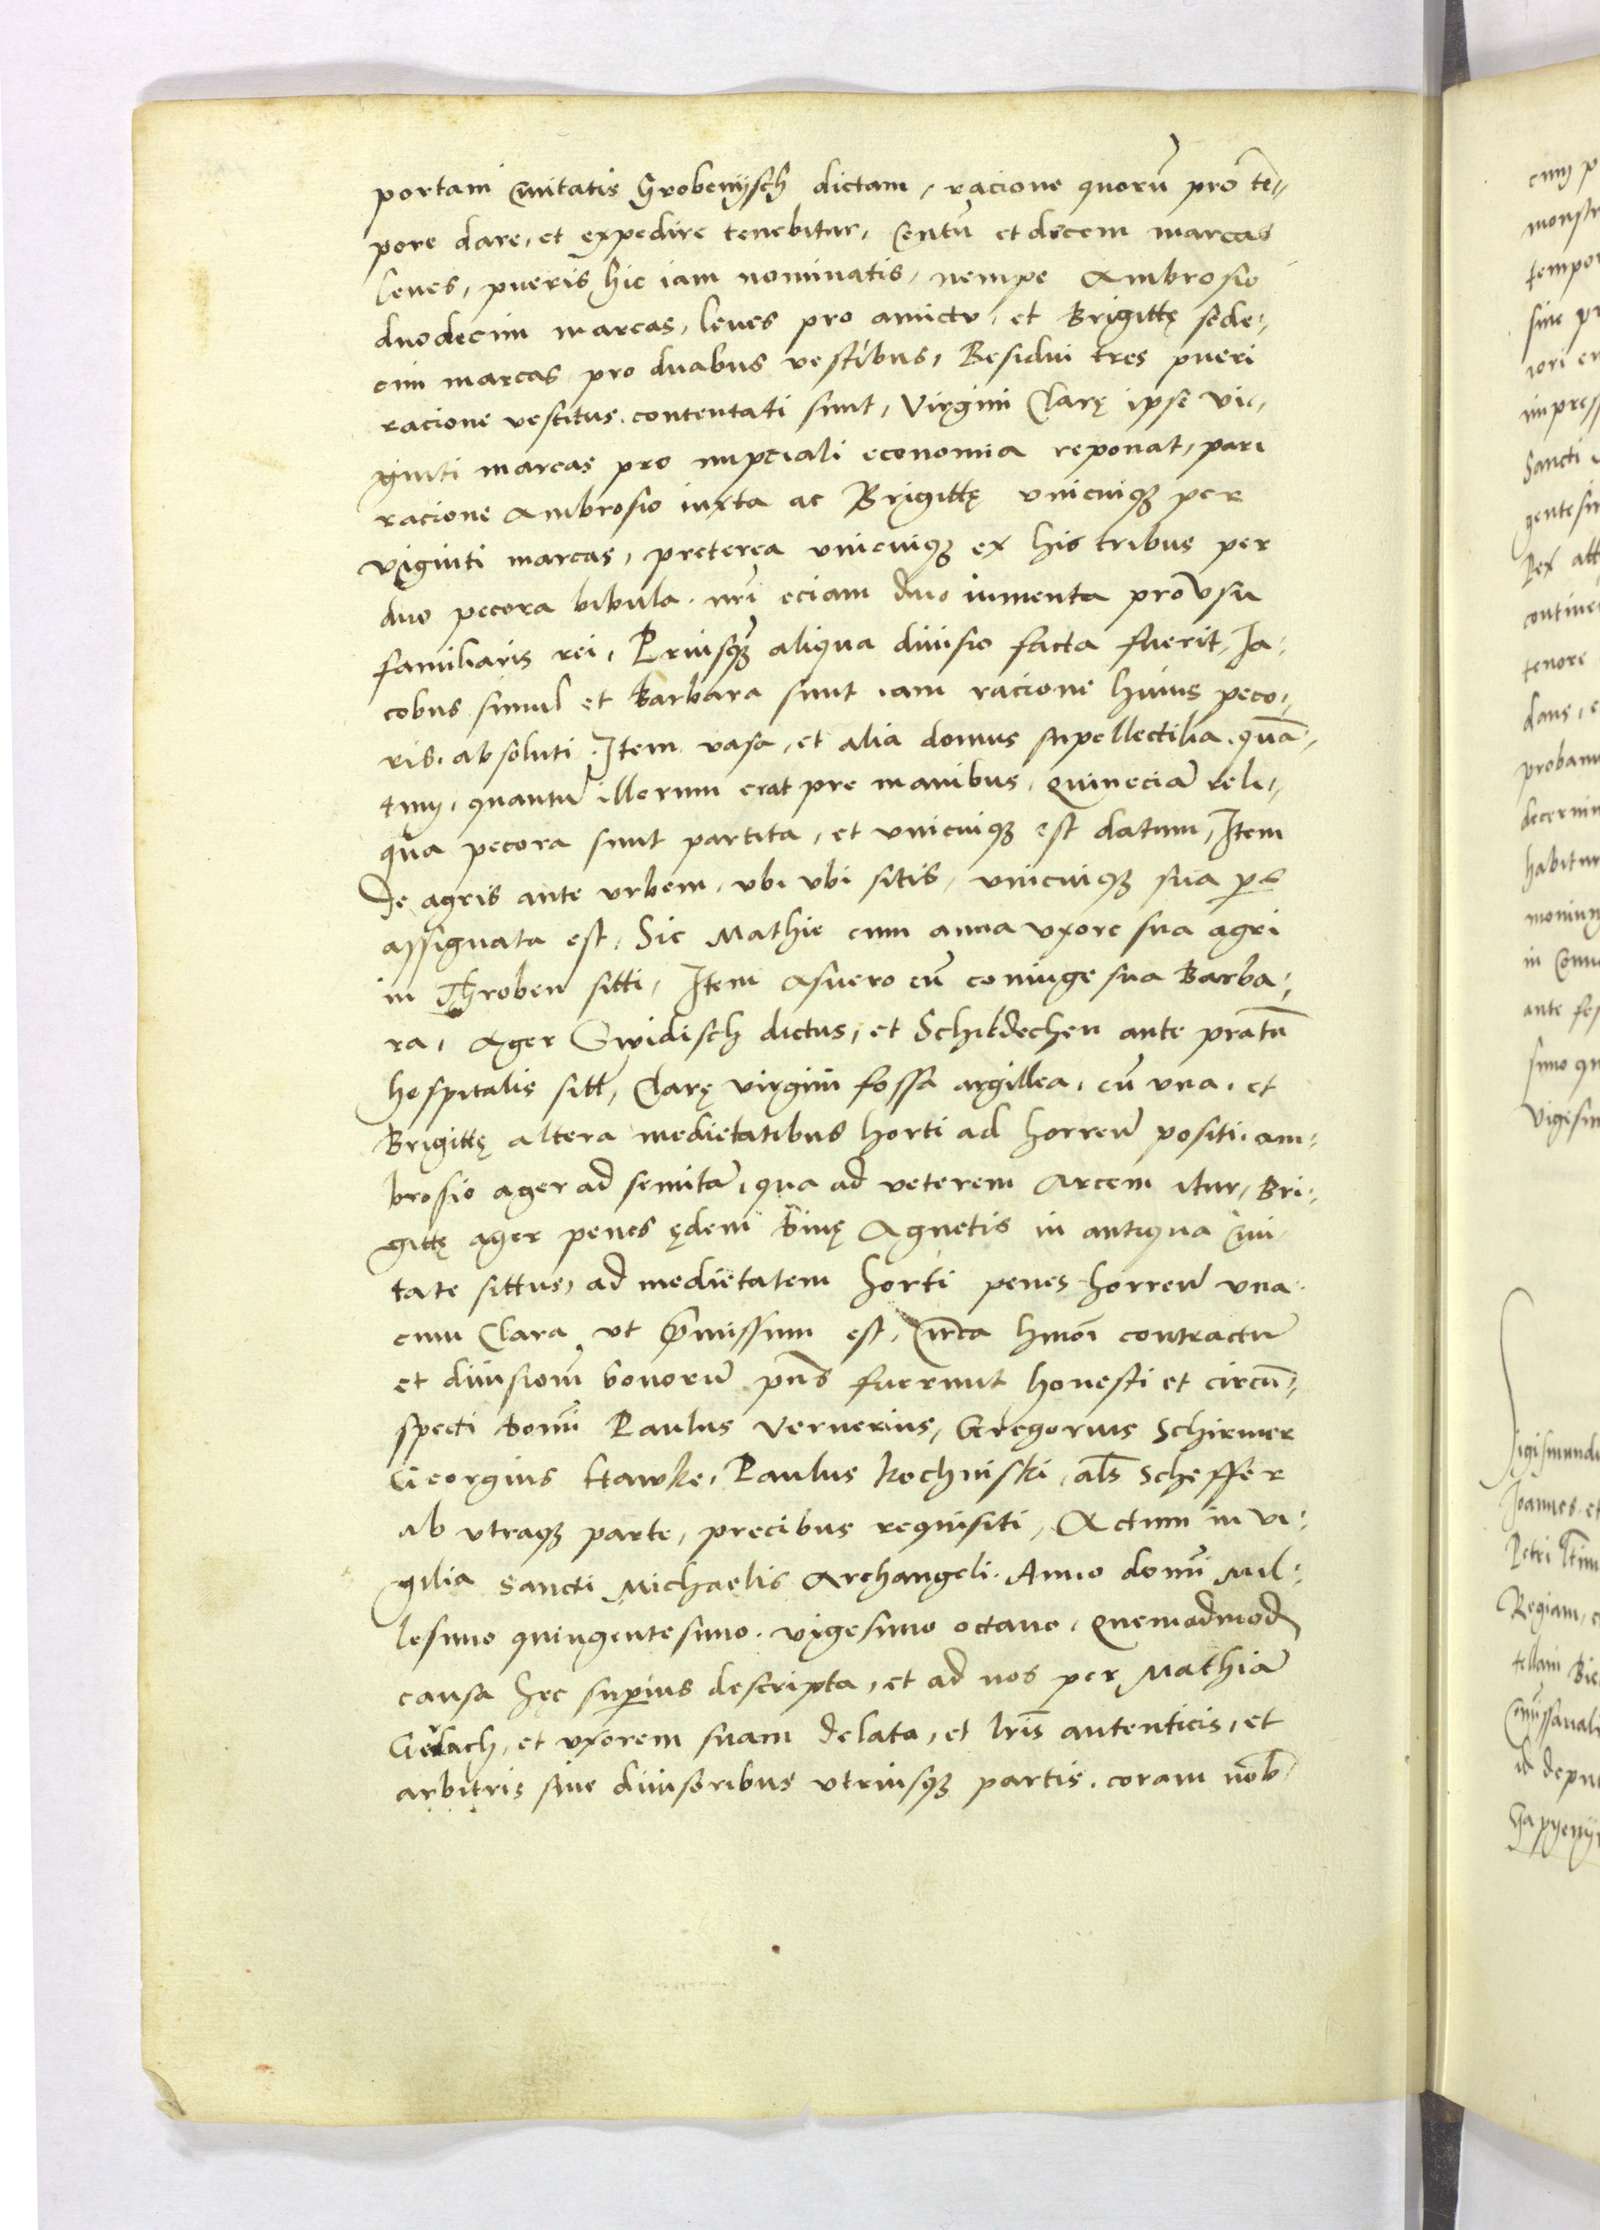 portam Ciuitatis Grobenijsch dictam, racione quorũ pro tẽ-
pore dare, et expedire tenebitur, Centũ et decem marcas
leues, pueris hic iam nominatis, nempe Ambrosio
duodecim marcas, leues pro amictu, et Brigittę sede-
cim marcas pro duabus vestibus, Residui tres pueri
racione vestitus contentati sunt, Virgini Clarę ipse vi-
ginti marcas pro nupciali economia reponat, pari
racione Ambrosio iuxta ac Brigittę vnicuiqꝫ per
viginti marcas, preterea vnicuiqꝫ ex his tribus per
duo pecora bibula eciam duo iumenta pro vsu
familiaris rei, Priusqꝫ aliqua diuisio facta fuerit, Ja-
cobus simul et Barbara sunt iam racione huius peco-
ris absoluti. Item vasa, et alia domus supellectilia, quã-
tum, quantũ illorum erat pre manibus, quineciã reli-
qua pecora sunt partita, et vnicuiqꝫ est datum, Item
de agris ante vrbem, vbi vbi sitis, vnicuiqꝫ sua ꝑs
assignata est, Sic Mathie cum anna vxore sua agri
in Throben sitti, Item Asuero cũ coniuge sua Barba-
ra, Ager Gwidisch dictus, et Schildechen ante pratũ
hospitalis sitt, Clarę virgini fossa argillea, cũ vna, et
Brigittę altera medietatibus horti ad horreũ positi, am-
brosio ager ad semitã, qua ad veterem Arcem itur, Bri-
gittę ager penes ędem diuę Agnetis in antiqua Ciui-
tate sittus, ad medietatem horti penes horreũ vna
cum Clara vt p̃missum est, Circa hmõi contractũ
et diuisionẽ bonorũ pñs fuerunt honesti et circũ-
specti domĩ Paulus Vernerius, Gregorius Schirmer
Georgius Hawke, Paulus Kochniski, als Scheffer
ab vtraqꝫ parte, precibus requisiti, Actum in vi-
gilia Sancti Michaelis Archangeli. Anno domĩ Mil-
lesimo quingentesimo vigesimo octauo, Quemadmodũ
causa hęc suꝑius descripta, et ad nos per Mathiã
Gerlach, et vxorem suam delata, et lrĩs autenticis, et
arbitris siue diuisoribus vtriusqꝫ partis, coram nob̃